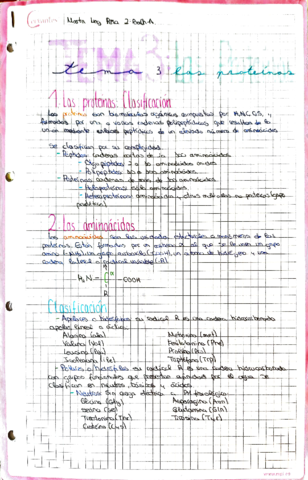 Marta Rosa 2º Bach-A
tema 3: las proteínas
1. Las proteínas. Clasificación
Las proteínas son biomoléculas orgánicas compuestas por H,N,C,O,S,
formadas por una o varias cadenas polipeptídicas que resultan de la
unión mediante enlaces peptídicos de un elevado número de aminoácidos
Se clasifican por su complejidad:
- Péptidos: cadenas cortas de aminoácidos
- Oligopéptidos: 2 a 10 aminoácidos
- Polipéptidos: aminoácidos
- Proteínas: cadenas de más de aminoácidos
- Holoproteínas: solo aminoácidos
- Heteroproteínas: aminoácidos y otras moléculas no proteicas (grupo
prostético)
2. Los aminoácidos
Los aminoácidos son las unidades estructurales o monómeros de las
proteínas. Están formados por un carbono α al que se le une un grupo
amino, un grupo carboxilo, un átomo de hidrógeno y una
cadena lateral o radical variable (-R)
H
H₂N — C — COOH
R
Clasificación
- Apolares o hidrófobos: su radical R es una cadena hidrocarbonada
apolar, lineal o cíclica
Alanina (Ala)
Metionina (Met)
Valina (Val)
Fenilalanina (Phe)
Leucina (Leu)
Prolina (Pro)
Isoleucina (Ile)
Triptófano (Trp)
- Polares o hidrófilos: su radical R es una cadena hidrocarbonada
con grupos funcionales que presentan afinidad por el agua. Se
clasifican en neutros, básicos y ácidos.
- Neutros: Sin carga eléctrica a PH fisiológico:
Glicina (Gly)
Asparagina (Asn)
Serina (Ser)
Glutamina (Gln)
Treonina (Thr)
Tirosina (Tyr)
Cisteína (Cys)